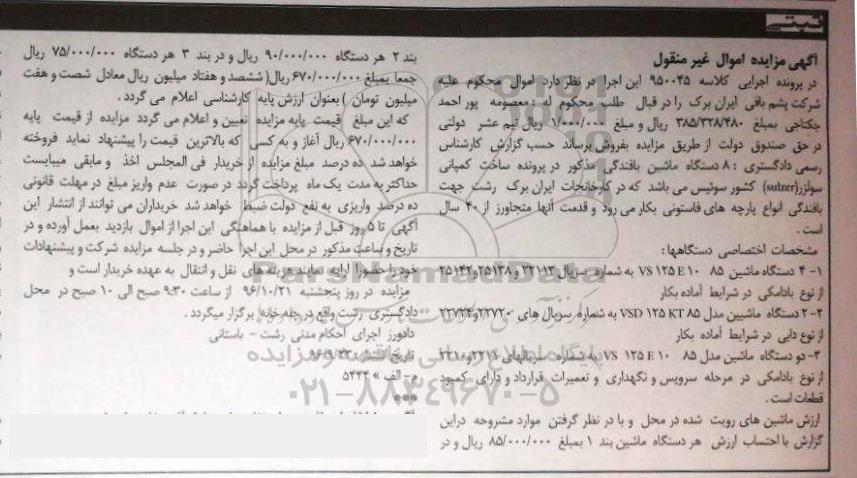 ثبتی
آگهی مزایده اموال غیر منقول
در پرونده اجرایی کلاسه ۹۵۰۰۴۵ این اجرا در نظر دارد اموال محکوم علیه
شرکت پشم بافی ایران برک را در قبال طلب محکوم له : معصومه پور احمد
جکتاجی بمبلغ ۳۸۵/۳۲۸/۴۸۰ ریال و مبلغ ۱/۰۰۰/۰۰۰ ریال نیم عشر دولتی
در حق صندوق دولت از طریق مزایده بفروش برساند حسب گزارش کارشناس
رسمی دادگستری : ۸ دستگاه ماشین بافندگی مذکور در پرونده ساخت کمپانی
سولزر(sulzer) کشور سوئیس می باشد که در کارخانجات ایران برک رشت جهت
بافندگی انواع پارچه های فاستونی بکار می رود و قدمت آنها متجاوز از ۴۰ سال
است .
مشخصات اختصاصی دستگاهها :
۱- ۴ دستگاه ماشین ۸۵ VS ۱۲۵ E ۱۰ به شماره سریال ۲۲۱۰۱۳ و ۲۵۱۳۸و۲۵۱۴۲
از نوع بادامکی در شرایط آماده بکار
۲- ۲ دستگاه ماشیین مدل ۸۵ VSD ۱۲۵ KT به شماره سریال های ۲۲۷۲۰و۲۲۷۲۴
از نوع دابی در شرایط آماده بکار
۳- دو دستگاه ماشین مدل ۸۵ VS ۱۲۵ E ۱۰ به شماره سریالهای ۲۲۱۱و۲۲۱۰
از نوع بادامکی در مرحله سرویس و نگهداری و تعمیرات قرارداد و دارای کمبود
قطعات است .
ارزش ماشین های رویت شده در محل و با در نظر گرفتن موارد مشروحه دراین
گزارش با احتساب ارزش هر دستگاه ماشین بند ۱ بمبلغ ۸۵/۰۰۰/۰۰۰ ریال و در
بند ۲ هر دستگاه ۹۰/۰۰۰/۰۰۰ ریال و در بند ۳ هر دستگاه ۷۵/۰۰۰/۰۰۰ ریال
جمعا بمبلغ ۶۷۰/۰۰۰/۰۰۰ ریال( ششصد و هفتاد میلیون ریال معادل شصت و هفت
میلیون تومان ) بعنوان ارزش پایه کارشناسی اعلام می گردد .
که این مبلغ قیمت پایه مزایده تعیین و اعلام می گردد مزایده از قیمت پایه
۶۷۰/۰۰۰/۰۰۰ ریال آغاز و به کسی که بالاترین قیمت را پیشنهاد نماید فروخته
خواهد شد ده درصد مبلغ مزایده از خریدار فی المجلس اخذ و مابقی میبایست
حداکثر به مدت یک ماه پرداخت گردد در صورت عدم واریز مبلغ در مهلت قانونی
ده درصد واریزی به نفع دولت ضبط خواهد شد خریداران می توانند از انتشار این
آگهی تا ۵ روز قبل از مزایده با هماهنگی این اجرا از اموال بازدید بعمل آورده و در
تاریخ و ساعت مذکور در محل این اجرا حاضر و در جلسه مزایده شرکت و پیشنهادات
خود را حضورا ارایه نمایند هزینه های نقل و انتقال به عهده خریدار است و
مزایده در روز پنجشنبه ۹۶/۱۰/۲۱ از ساعت ۹:۳۰ صبح الی ۱۰ صبح در محل
دادگستری رشت واقع در جلبخانه برگزار میگردد .
دادورز اجرای احکام مدنی رشت - باستانی
تاریخ انتشار: ۹۶/۹/۲۳
م - الف » ۵۴۴۴
***
ParsNamadData
پایگاه اطلاع رسانی مناقصه و مزایده
۰۲۱-۸۸۳۴۹۶۷۰-۵